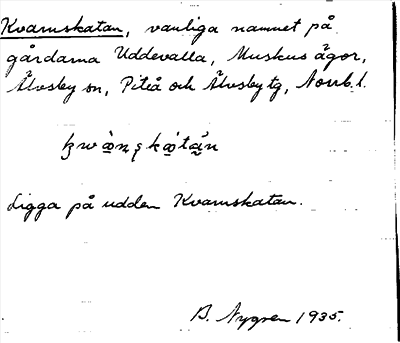 Kvarnskatan, vanliga namnet på
gårdarna Uddevalla, Muskus ägor,
Älvsby sn, Piteå och Älvsby tg, Norrb. l.
Ligga på udden Kvarnskatan.
B. Nygren 1935.